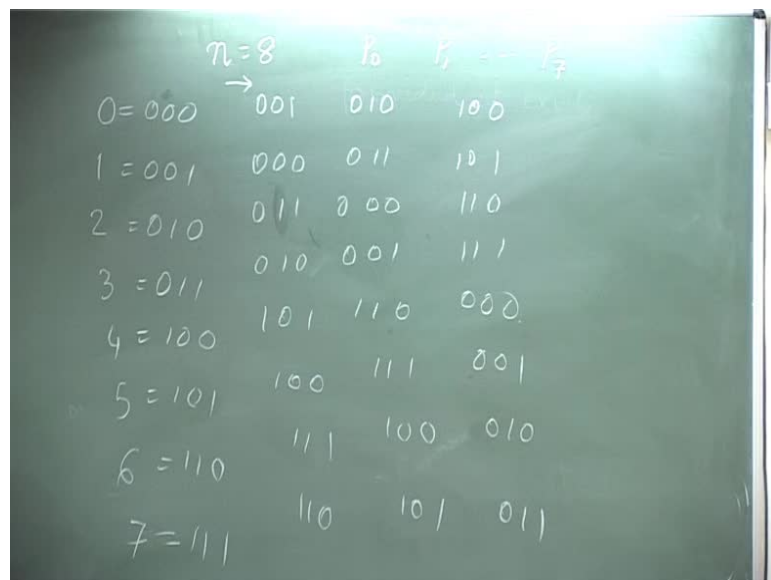 n=8 P₀ P₁ -- P₇
→
0=000 001 010 100
1=001 000 011 101
2=010 011 000 110
3=011 010 001 111
4=100 101 110 000
5=101 100 111 001
6=110 111 100 010
7=111 110 101 011